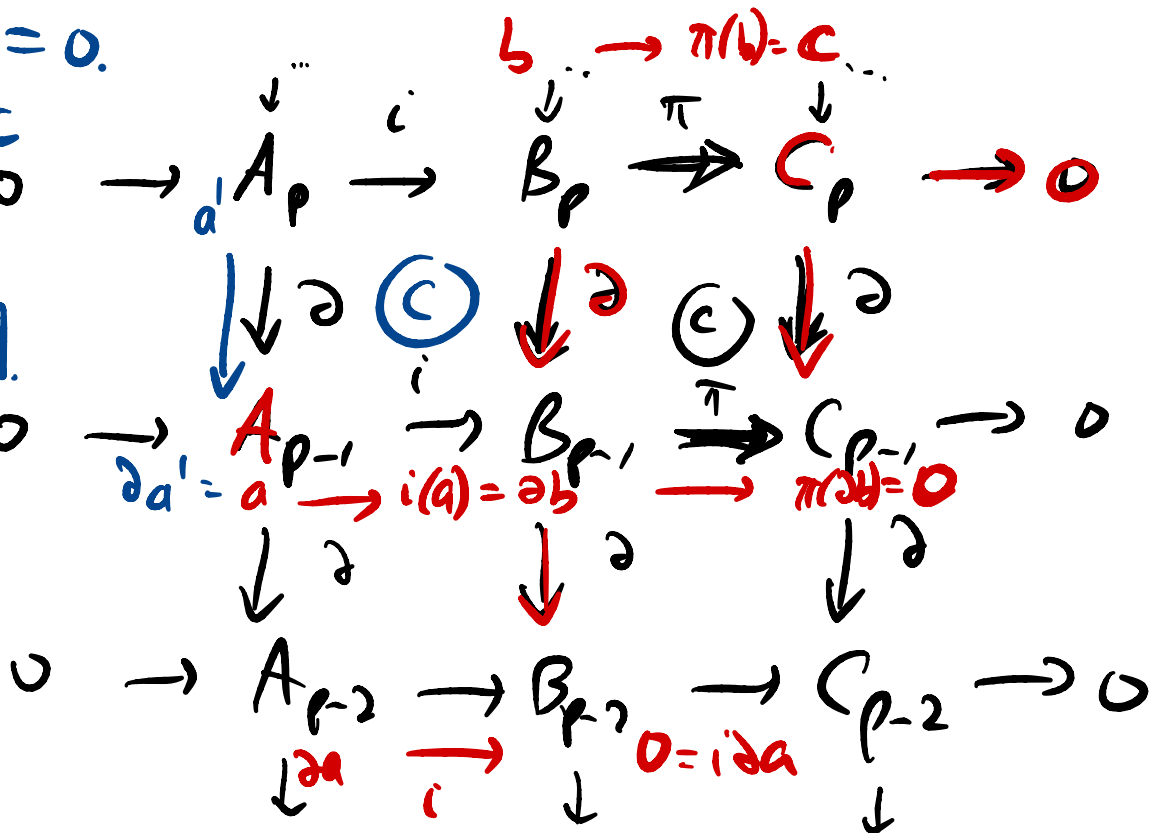 = 0.
b → π(b) = c
... ... ...
↓ i ↓ π ↓
0 → A_p → B_p → C_p → 0
a'
↓ ∂ ⓒ ↓ ∂ ⓒ ↓ ∂
i π
0 → A_{p-1} → B_{p-1} → C_{p-1} → 0
∂a' = a → i(a) = ∂b → π(∂b) = 0
↓ ∂ ↓ ∂ ↓ ∂
0 → A_{p-2} → B_{p-2} → C_{p-2} → 0
∂a → 0 = i∂a
↓ i ↓ ↓